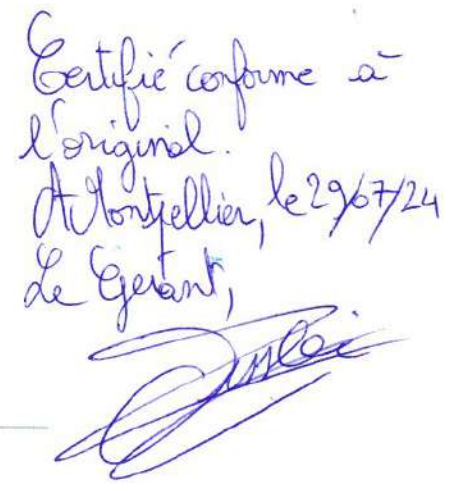 Certifié conforme à
l'original.
A Montpellier, le 29/07/24
Le Gérant,